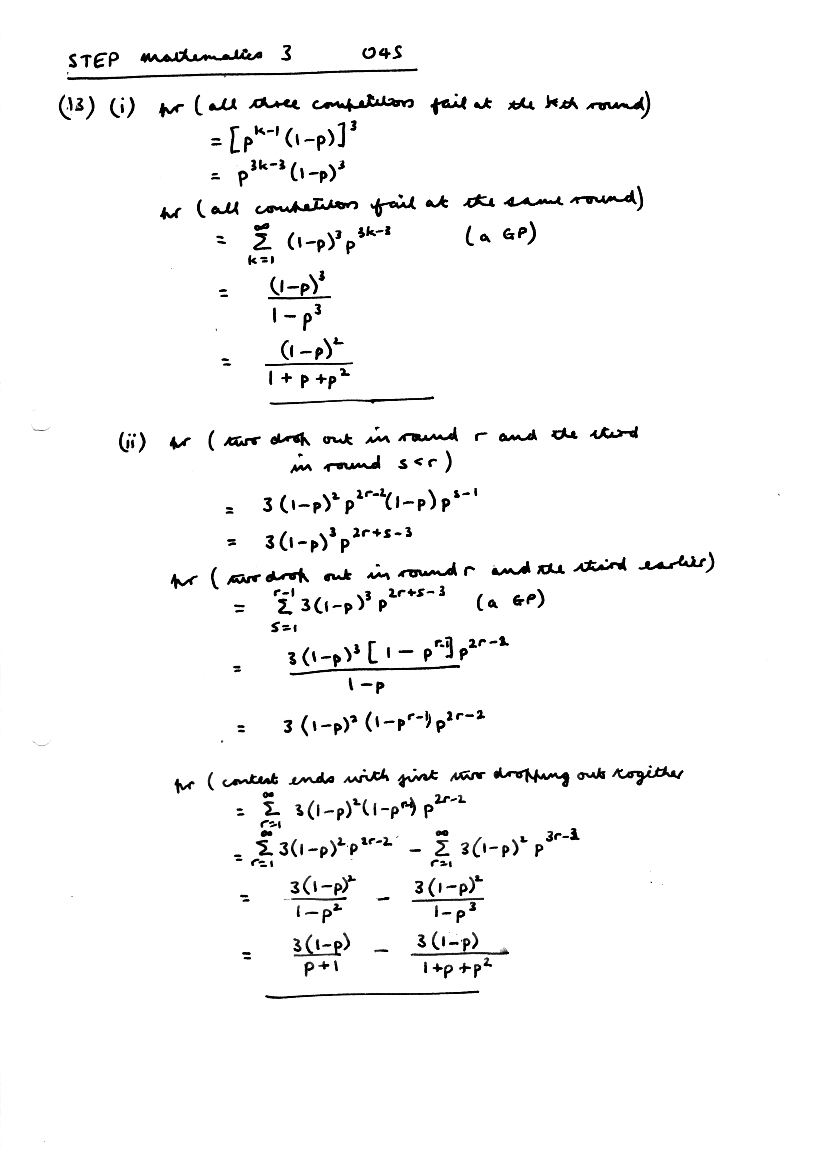 STEP Mathematics 3 04S
(13) (i) pr (all three competitors fail at the kth round)
= [p^{k-1}(1-p)]^3
= p^{3k-3}(1-p)^3
pr (all competitors fail at the same round)
= \sum_{k=1}^{∞} (1-p)^3 p^{3k-3} (a GP)
= \frac{(1-p)^3}{1-p^3}
= \frac{(1-p)^2}{1+p+p^2}
(ii) pr (two drop out in round r and the third
in round s<r)
= 3(1-p)^2 p^{2r-2}(1-p)p^{s-1}
= 3(1-p)^3 p^{2r+s-3}
pr (two drop out in round r and the third earlier)
= \sum_{s=1}^{r-1} 3(1-p)^3 p^{2r+s-3} (a GP)
= \frac{3(1-p)^3[1-p^{r-1}]p^{2r-2}}{1-p}
= 3(1-p)^2(1-p^{r-1})p^{2r-2}
pr (contest ends with first two dropping out together
= \sum_{r=1}^{∞} 3(1-p)^2(1-p^{r-1})p^{2r-2}
= \sum_{r=1}^{∞} 3(1-p)^2 p^{2r-2} - \sum_{r=1}^{∞} 3(1-p)^2 p^{3r-3}
= \frac{3(1-p)^2}{1-p^2} - \frac{3(1-p)^2}{1-p^3}
= \frac{3(1-p)}{p+1} - \frac{3(1-p)}{1+p+p^2}